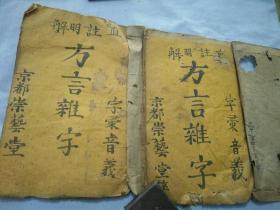 直註明解
方言雜字
字彙音義
京都崇藝堂
直註明解
方言雜字
字彙音義
京都崇藝堂